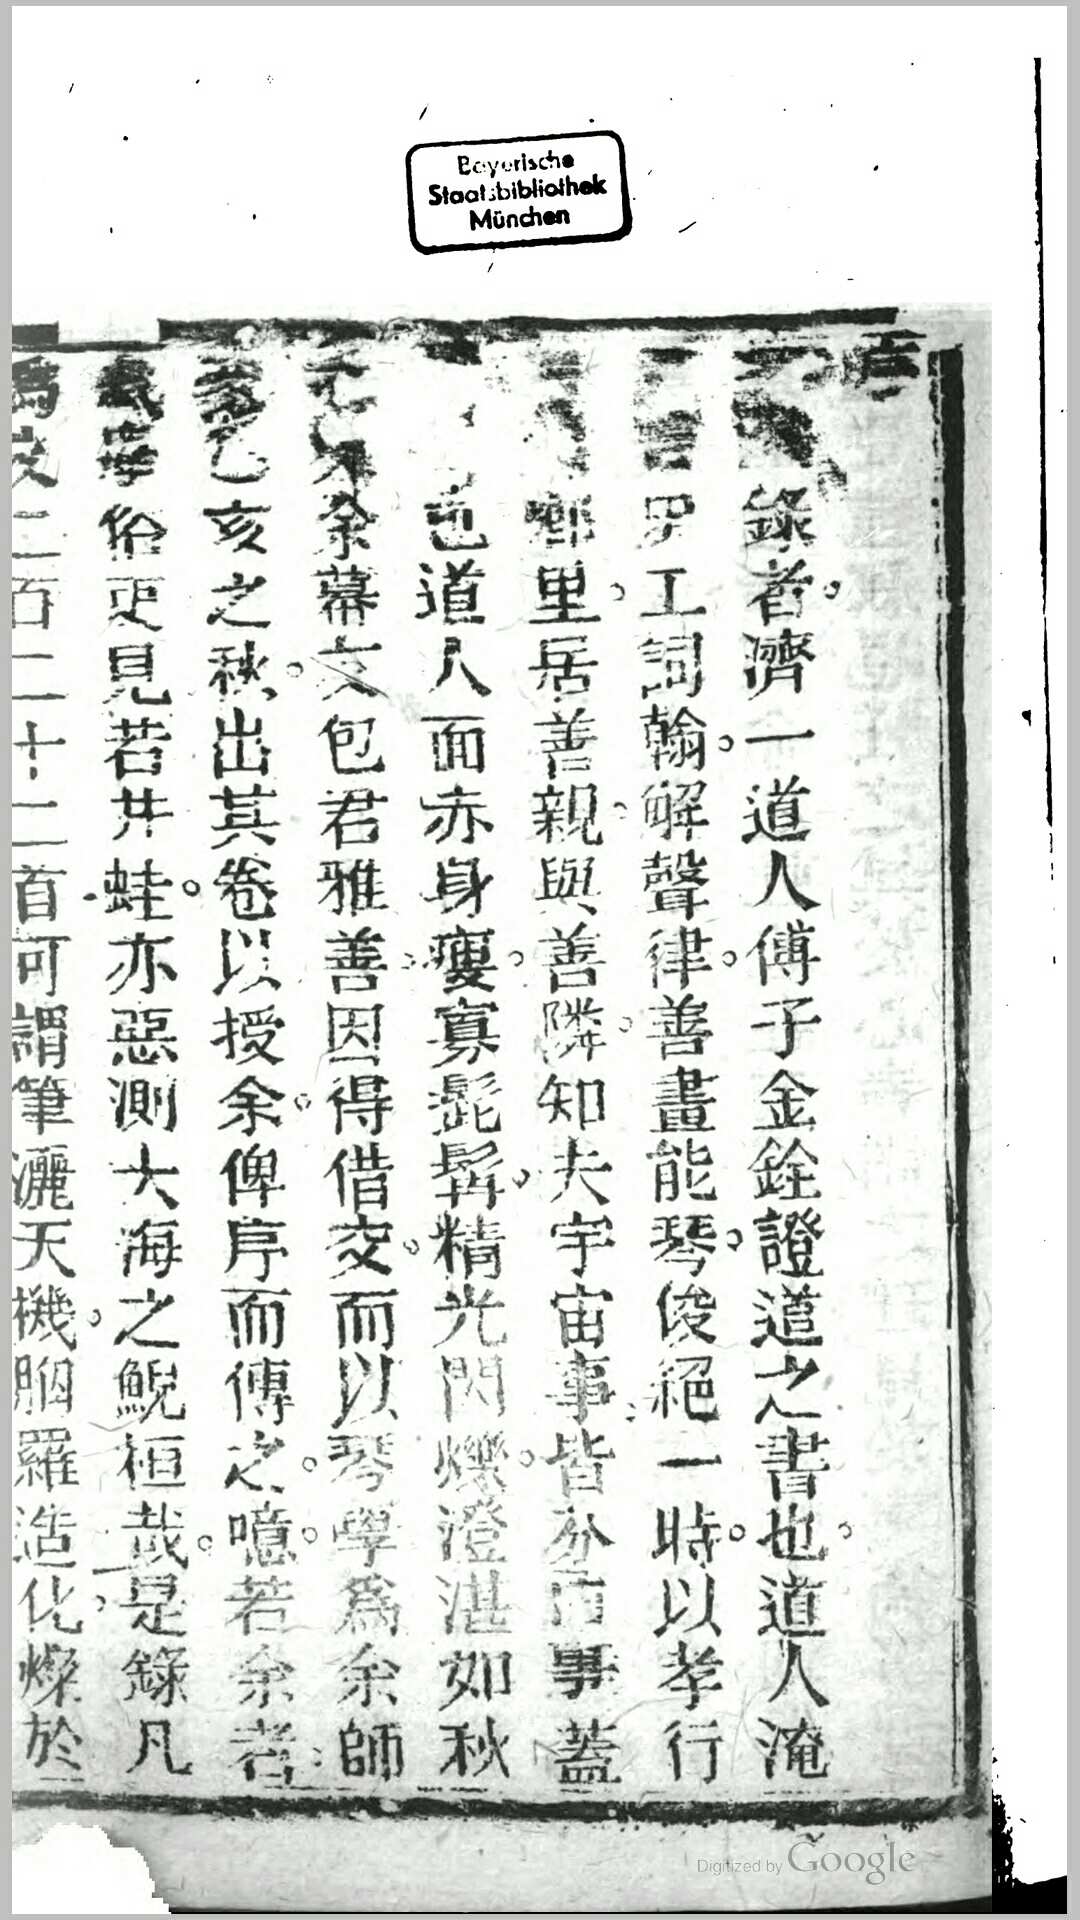 Bayerische
Staatsbibliothek
München
序
錄者濟一道人傅子金銓證道之書也道人淹
工詞翰解聲律善畫能琴俊絕一時以孝行
鄉里居善親與善隣知夫宇宙事皆分內事蓋
也道人面赤身癯寡髭髯精光閃爍澄湛如秋
余幕友包君雅善因得借交而以琴學爲余師
乙亥之秋出其卷以授余俾序而傳之噫若余者
俗吏見若井蛙亦惡測大海之鯢桓哉是錄凡
爲文二百二十二首可謂筆灑天機胸羅造化燦於
Digitized by Google